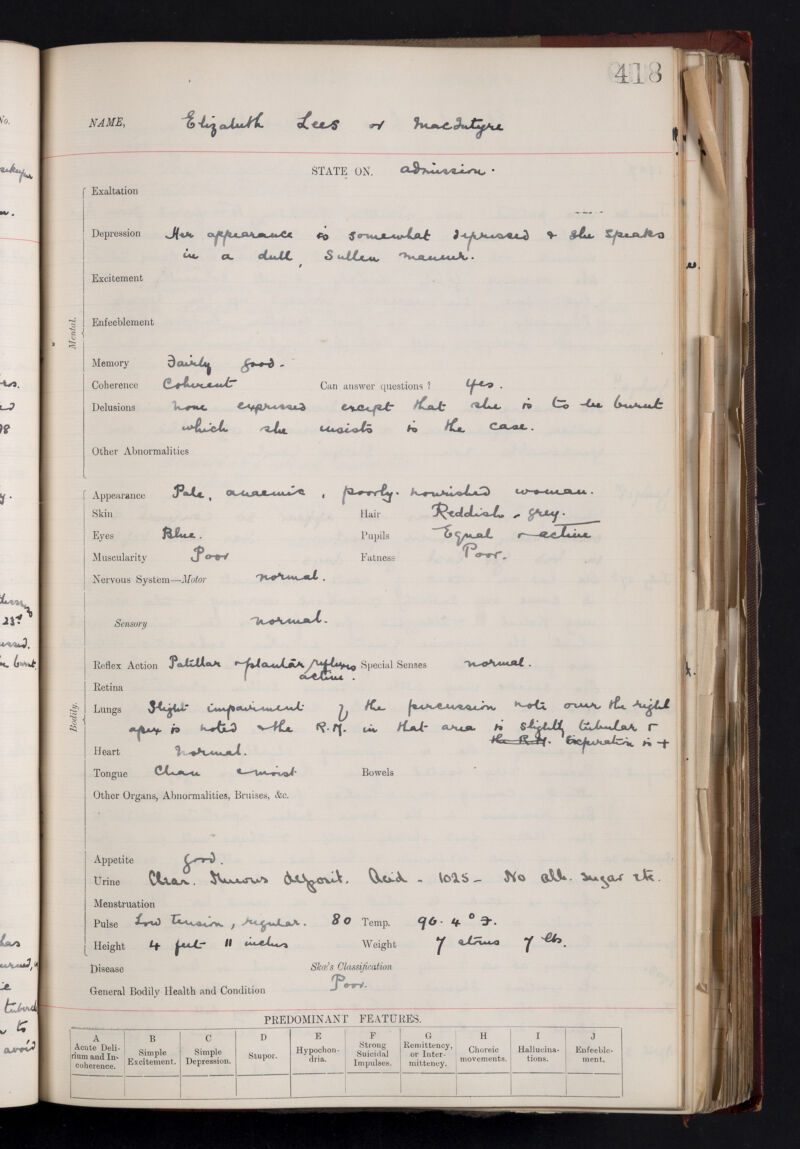 418
NAME, Elizabeth Lees or MacIntyre
STATE ON. admission.
Mental.
Exaltation
Depression Her appearance is somewhat depressed & she speaks
in a dull, sullen manner.
Excitement
Enfeeblement
Memory Fairly good.
Coherence Coherent Can answer questions? Yes.
Delusions None expressed except that she is to be burnt
which she insists is the case.
Other Abnormalities
Bodily.
Appearance Pale, anaemic, poorly-nourished woman.
Skin Hair Reddish-grey.
Eyes Blue. Pupils Equal & active
Muscularity Poor Fatness Poor.
Nervous System—Motor normal.
Sensory normal.
Reflex Action Patellar & plantar reflexes Special Senses normal.
active.
Retina
Lungs Slight impairment of the percussion note over the right
apex is noted & the R.M. in that area is slightly tubular &
the R.M. Expiration is +
Heart Normal.
Tongue Clean & moist Bowels
Other Organs, Abnormalities, Bruises, &c.
Appetite good.
Urine Clear. Mucous deposit. Acid - 1025 - No alb. sugar etc.
Menstruation
Pulse Low tension, regular. 80 Temp. 96.4° F.
Height 4 feet 11 inches Weight 7 stones 7 lbs.
Disease Skae's Classification
General Bodily Health and Condition Poor.
PREDOMINANT FEATURES.
A B C D E F G H I J
Acute Delirium and Incoherence. Simple Excitement. Simple Depression. Stupor. Hypochondria. Strong Suicidal Impulses. Remittency, or Intermittency. Choreic movements. Hallucinations. Enfeeblement.